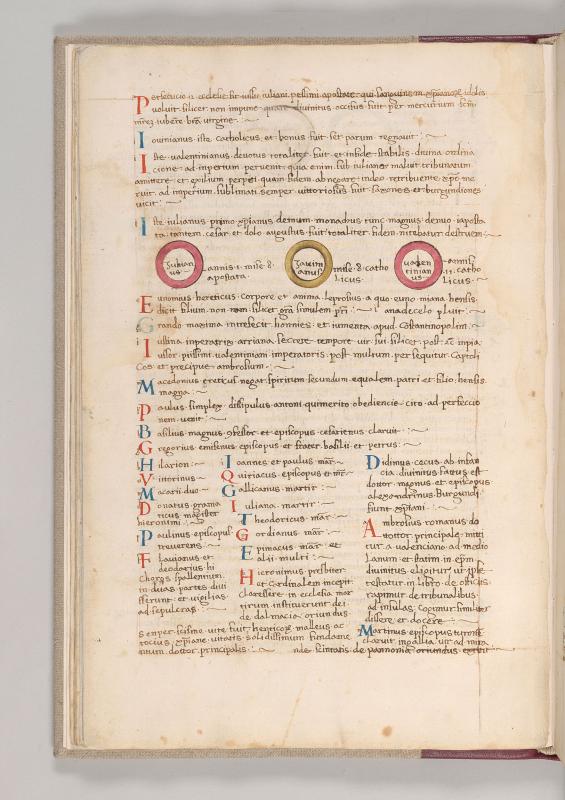 Persecucio ii ecclesie fit iussu iuliani pessimi apostate qui sanguinem xpianorum idolis
voluit silicet non impune quare divinitus occisus fuit per mercurium
iubente bta virgine
Iovinianus iste catholicus et bonus fuit set parum regnavit
Iste valentinianus devotus totaliter fuit et in fide stabilis divina ordina
cione ad imperium pervenit quia enim sub iuliano maluit tribunatum
amittere et exilium perpeti quam fidem abnegare ideo retribuente xpo me
ruit ad imperium sublimari semper vittoriosus fuit saxones et burgundiones
vicit
Iste iulianus primo xpianus demum monachus tunc magnus demio iaposta
ta tantem cesar et dolo augustus fuit totaliter fidem nitebatur destruere
iulian
us
annis i mise 8
apostata
iovini
anus
mise 8 catho
licus
valen
tinian
us
annis
ii catho
licus
Eunomius hereticus corpore et anima leprosus a quo euno miana heresis
dicit filium non silicet similem pri lana de celo pluit
Grando maxima interfecit homines et iumenta apud Costantinopolim
Iustina imperatrix arriana seccere tempore viri sui silicet post
piissimi valentiniani imperatoris post multum persequitur catoli
cos et precipue ambrosium
Macedonius ereticus negat spiritum secundum equalem patri et filio heresis
magna
Paulus simplex dissipulus antoni qui merito obediencie cito ad perfeccio
nem venit
Basilius magnus confessor et episcopus cesariensis claruit
Gregorius emisenus episcopus et frater basilii et petrus
Hilarion
Vittorinus
Macarii duo
Donatus grama
ticus magister
hieronimi
Paulinus episcopus
treverensis
Flavianus et
deodarius hi
choros spallentium
in duas partes divi
sserunt et vigilias
ad sepulcras
Ioannes et paulus mar
Quiriacus episcopus et mr
Gallicanus martir
Iuliana martir
Theodoricus mar
Gordianus mar
Epimacus mar et
alii multi
Hieronimus presbiter
et cardinalem incepit
claressere in ecclesia mar
tirum instituerunt dei
de dalmacia oriundus
Didimus cecus ab infan
cia divinitus fattus est
dottor magnus et episcopus
alexandrinus Burgundi
fiunt xpiani
Ambrosius romanus do
ttottor principale mitti
tur a valenciano ad medio
lanum et statim in epm
divinitus eligitur ut ipse
testatur in libro de officiis
rapimur de tribunalibus
ad insulas cogimur similiter
dissere et docere
Martinus episcopus turone
claruit in gallia vir ad mira
Semper issime vite fuit hereticorum malleus ac
tocius xpiane vitatis solidissimum fundame
ntum dottor principalis
nde scintatis de pannonia oriundus extitit